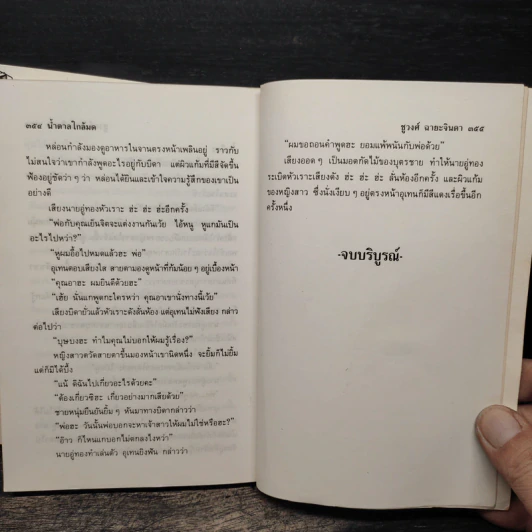 ๓๕๔ น้ำตาลใกล้มด
หล่อนกำลังมองดูอาหารในจานตรงหน้าเพลินอยู่ ราวกับ
ไม่สนใจว่าเขากำลังพูดอะไรอยู่กับบิดา แต่ผิวแก้มที่มีสีจัดขึ้น
ฟ้องอยู่ชัดว่า ๆ ว่า หล่อนได้ยินและเข้าใจความรู้สึกของเขาเป็น
อย่างดี
เสียงนายอู่ทองหัวเราะ ฮ่ะ ฮ่ะ ฮ่ะอีกครั้ง
“พ่อกับคุณเย็นจิตจะแต่งงานกันเว้ย ไอ้หนู หูแกมันเป็น
อะไรไปหวา?”
“หูผมอื้อไปหมดแล้วฮะ พ่อ”
อุเทนตอบเสียงใส สายตามองดูหน้าที่ก้มน้อย ๆ อยู่เบื้องหน้า
“คุณอาฮะ ผมยินดีด้วยฮะ”
“เฮ้ย นั่นแกพูดกะใครหวา คุณอาเขานั่งทางนี้เว้ย”
เสียงบิดายั่วแล้วหัวเราะดังลั่นห้อง แต่อุเทนไม่ฟังเสียง กล่าว
ต่อไปว่า
“บุษบงฮะ ทำไมคุณไม่บอกให้ผมรู้เรื่อง?”
หญิงสาวตวัดสายตาขึ้นมองหน้าเขานิดหนึ่ง จะยิ้มก็ไม่ยิ้ม
แต่ก็มิได้บึ้ง
“แน้ ดิฉันไปเกี่ยวอะไรด้วยคะ”
“ต้องเกี่ยวซีฮะ เกี่ยวอย่างมากเสียด้วย”
ชายหนุ่มยืนยันยิ้ม ๆ หันมาทางบิดากล่าวว่า
“พ่อฮะ วันนั้นพ่อบอกจะหาเจ้าสาวให้ผมไม่ใช่หรือฮะ?”
“อ้าว ก็ไหนแกบอกไม่ตกลงไงหวา”
นายอู่ทองทำเล่นตัว อุเทนยิงฟัน กล่าวว่า
ชูวงศ์ ฉายะจินดา ๓๕๕
“ผมขอถอนคำพูดฮะ ยอมแพ้พนันกับพ่อด้วย”
เสียงออด ๆ เป็นมอดกัดไม้ของบุตรชาย ทำให้นายอู่ทอง
ระเบิดหัวเราะเสียงดัง ฮ่ะ ฮ่ะ ฮ่ะ ลั่นห้องอีกครั้ง และผิวแก้ม
ของหญิงสาว ซึ่งนั่งเงียบ ๆ อยู่ตรงหน้าอุเทนก็มีสีแดงเรื่อขึ้นอีก
ครั้งหนึ่ง
·จบบริบูรณ์·